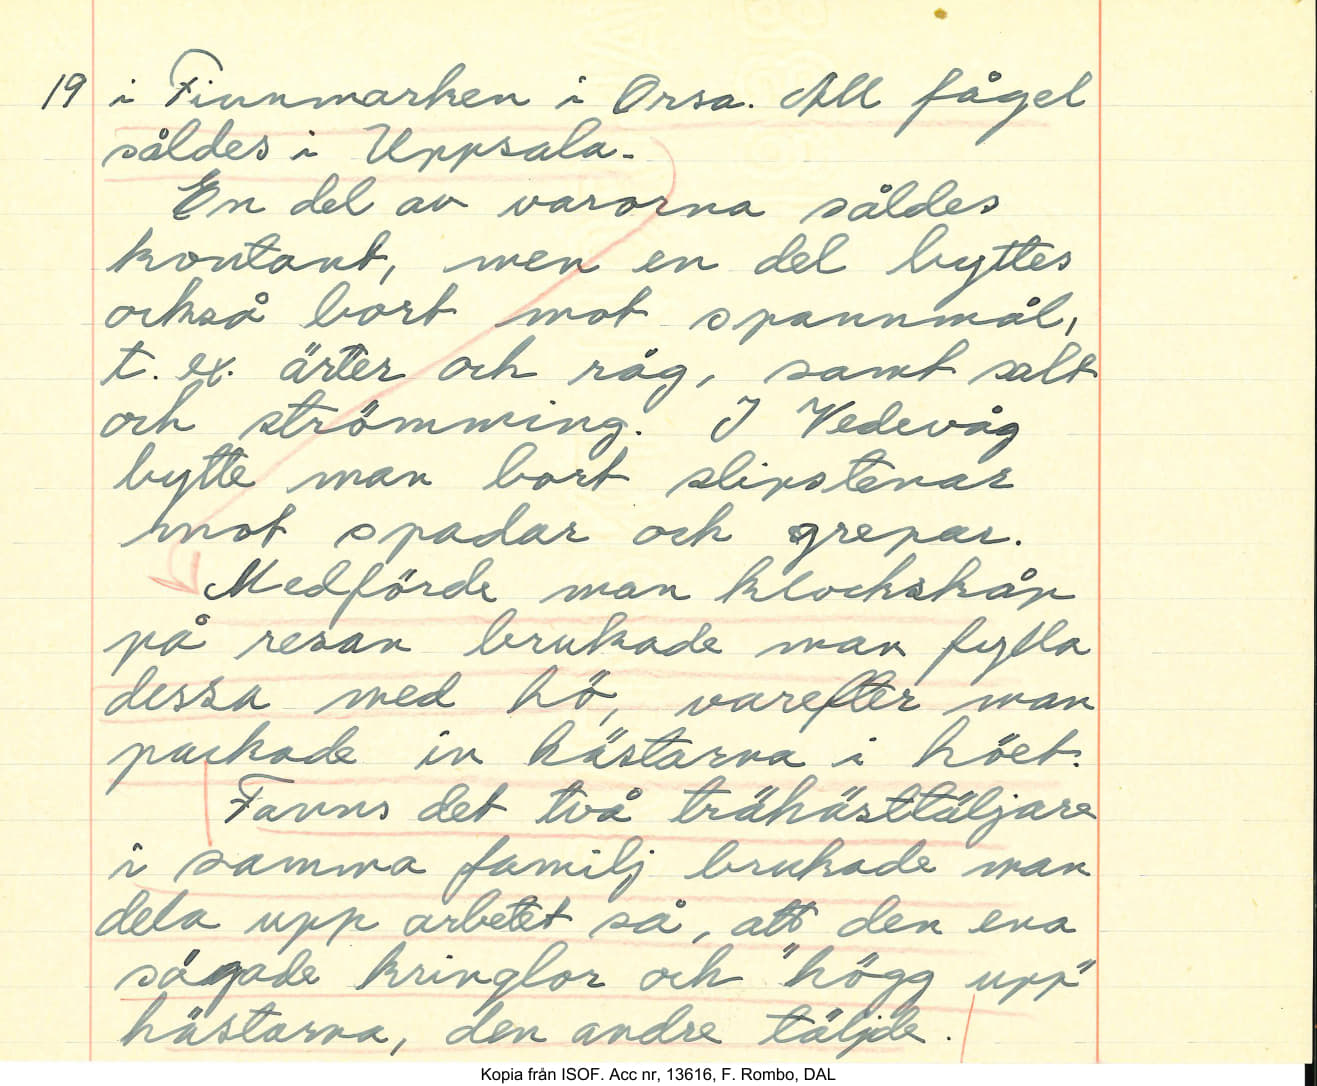 19 i Finnmarken i Orsa. All fågel
såldes i Uppsala.
En del av varorna såldes
kontant, men en del byttes
också bort mot spannmål,
t. ex. ärter och råg, samt salt
och strömming. I Vedevåg
bytte man bort slipstenar
mot spadar och grepar.
Medförde man klockskåp
på resan brukade man fylla
dessa med hö, varefter man
packade in hästarna i höet.
Fanns det två trähästtäljare
i samma familj brukade man
dela upp arbetet så, att den ena
sågade kringlor och "högg upp"
hästarna, den andre täljde.
Kopia från ISOF. Acc nr, 13616, F. Rombo, DAL